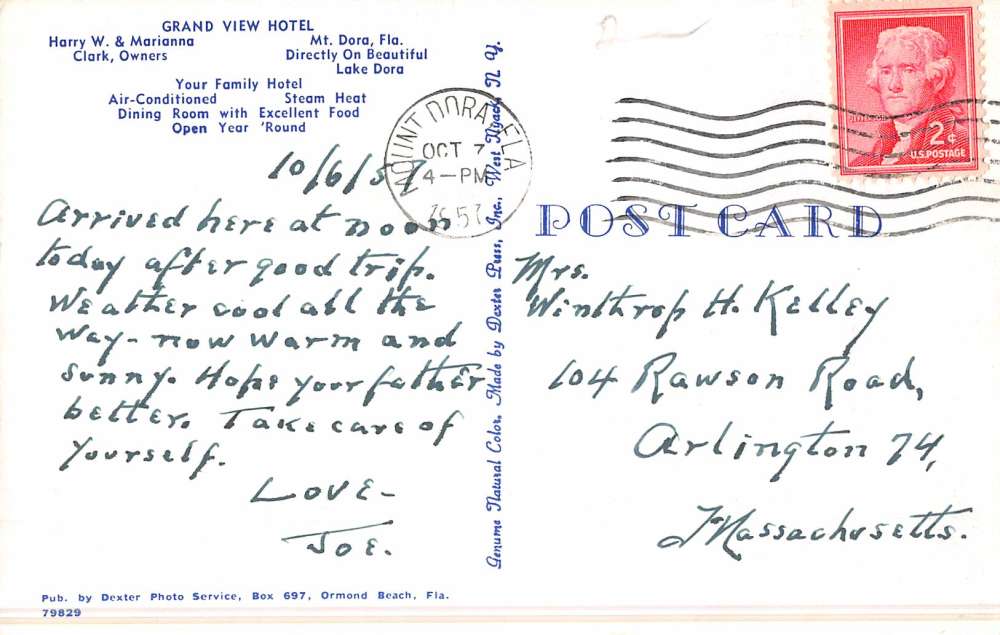 GRAND VIEW HOTEL
Harry W. & Marianna Mt. Dora, Fla.
Clark, Owners Directly On Beautiful
Lake Dora
Your Family Hotel
Air-Conditioned Steam Heat
Dining Room with Excellent Food
Open Year 'Round
10/6/57
Arrived here at noon
today after good trip.
Weather cool all the
way - now warm and
sunny. Hope your father
better. Take care of
yourself.
Love -
Joe.
Pub. by Dexter Photo Service, Box 697, Ormond Beach, Fla.
79829
Genuine Natural Color, Made by Dexter Press, Inc., West Nyack, N. Y.
MOUNT DORA, FLA.
OCT 7
4-PM
1957
2¢
U.S. POSTAGE
POST CARD
Mrs.
Winthrop H. Kelley
104 Rawson Road,
Arlington 74,
Massachusetts.